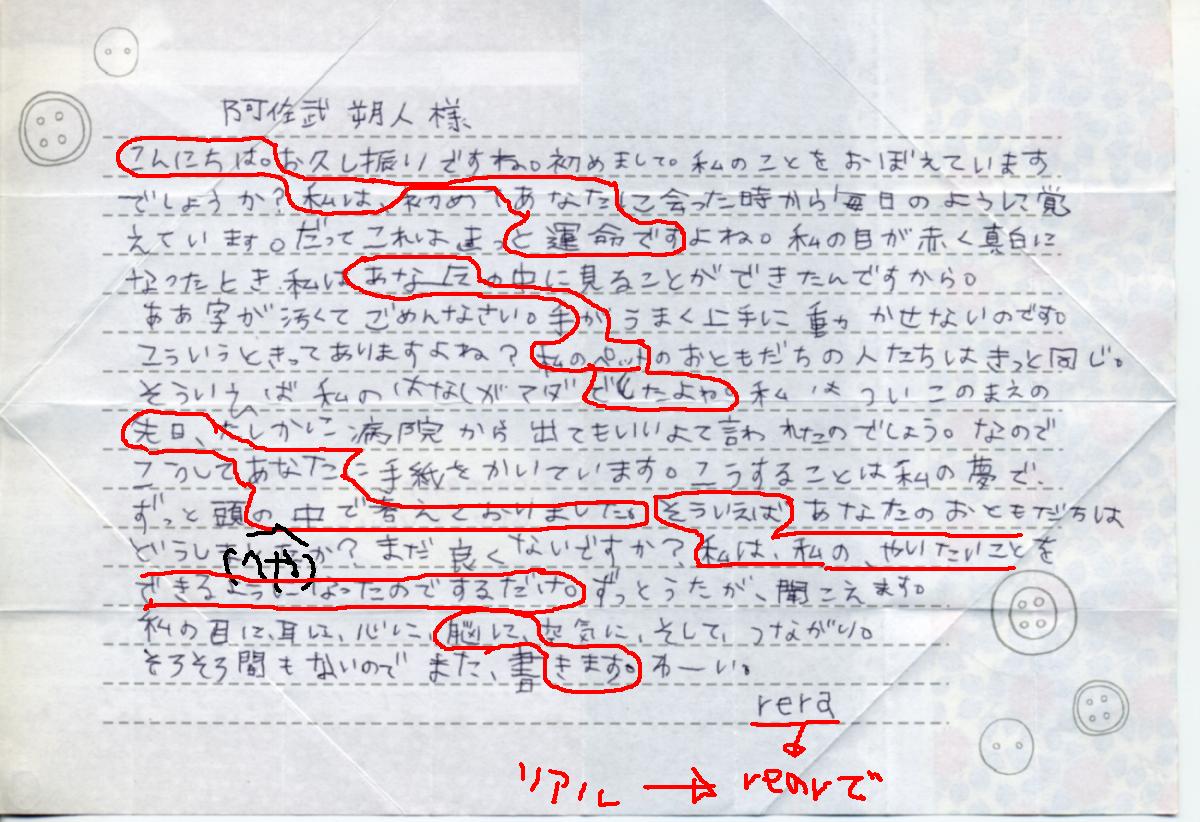 阿佐武 朔人 様
こんにちは。お久し振りですね。初めまして。私のことをおぼえています
でしょうか?私は、初めてあなたに会った時から毎日のようして覚
えています。だってこれはきっと運命ですよね。私の目が赤く真白に
なったとき私はあなたの中に見ることができたんですから。
ああ字が汚くてごめんなさい。手がうまく上手に動かせないのです。
こういうときってありますよね?私のペットのおともだちの人たちはきっと同じ。
そういえば私のはなしがマダでしたよね。私はついこのまえの
先日、たしかに病院から出てもいいよて言われたのでしょう。なので
こうしてあなたに手紙をかいています。こうすることは私の夢で、
ずっと頭の中で考えておいました。そういえばあなたのおともだちは
どうしましたか?まだ良くないですか?私は、私の、やいたいことを
(へや)
できるようになったのでするだけ。ずっとうたが、聞こえます。
私の目に、耳に、心に、脳に、空気に、そして、つながり。
そろそろ間もないのでまた、書きます。わーい。
rera
リアル → rearで